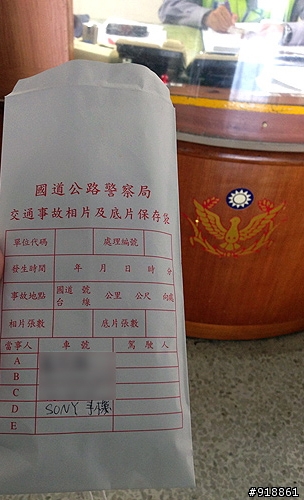 國道公路警察局
交通事故相片及底片保存袋
單位代碼 處理編號
發生時間 年 月 日 時 分
事故地點 國道 號 公里 公尺 向處
台 線
相片張數 底片張數
當事人 車號 駕駛人
A
B
C
D SONY 手機
E
#918861